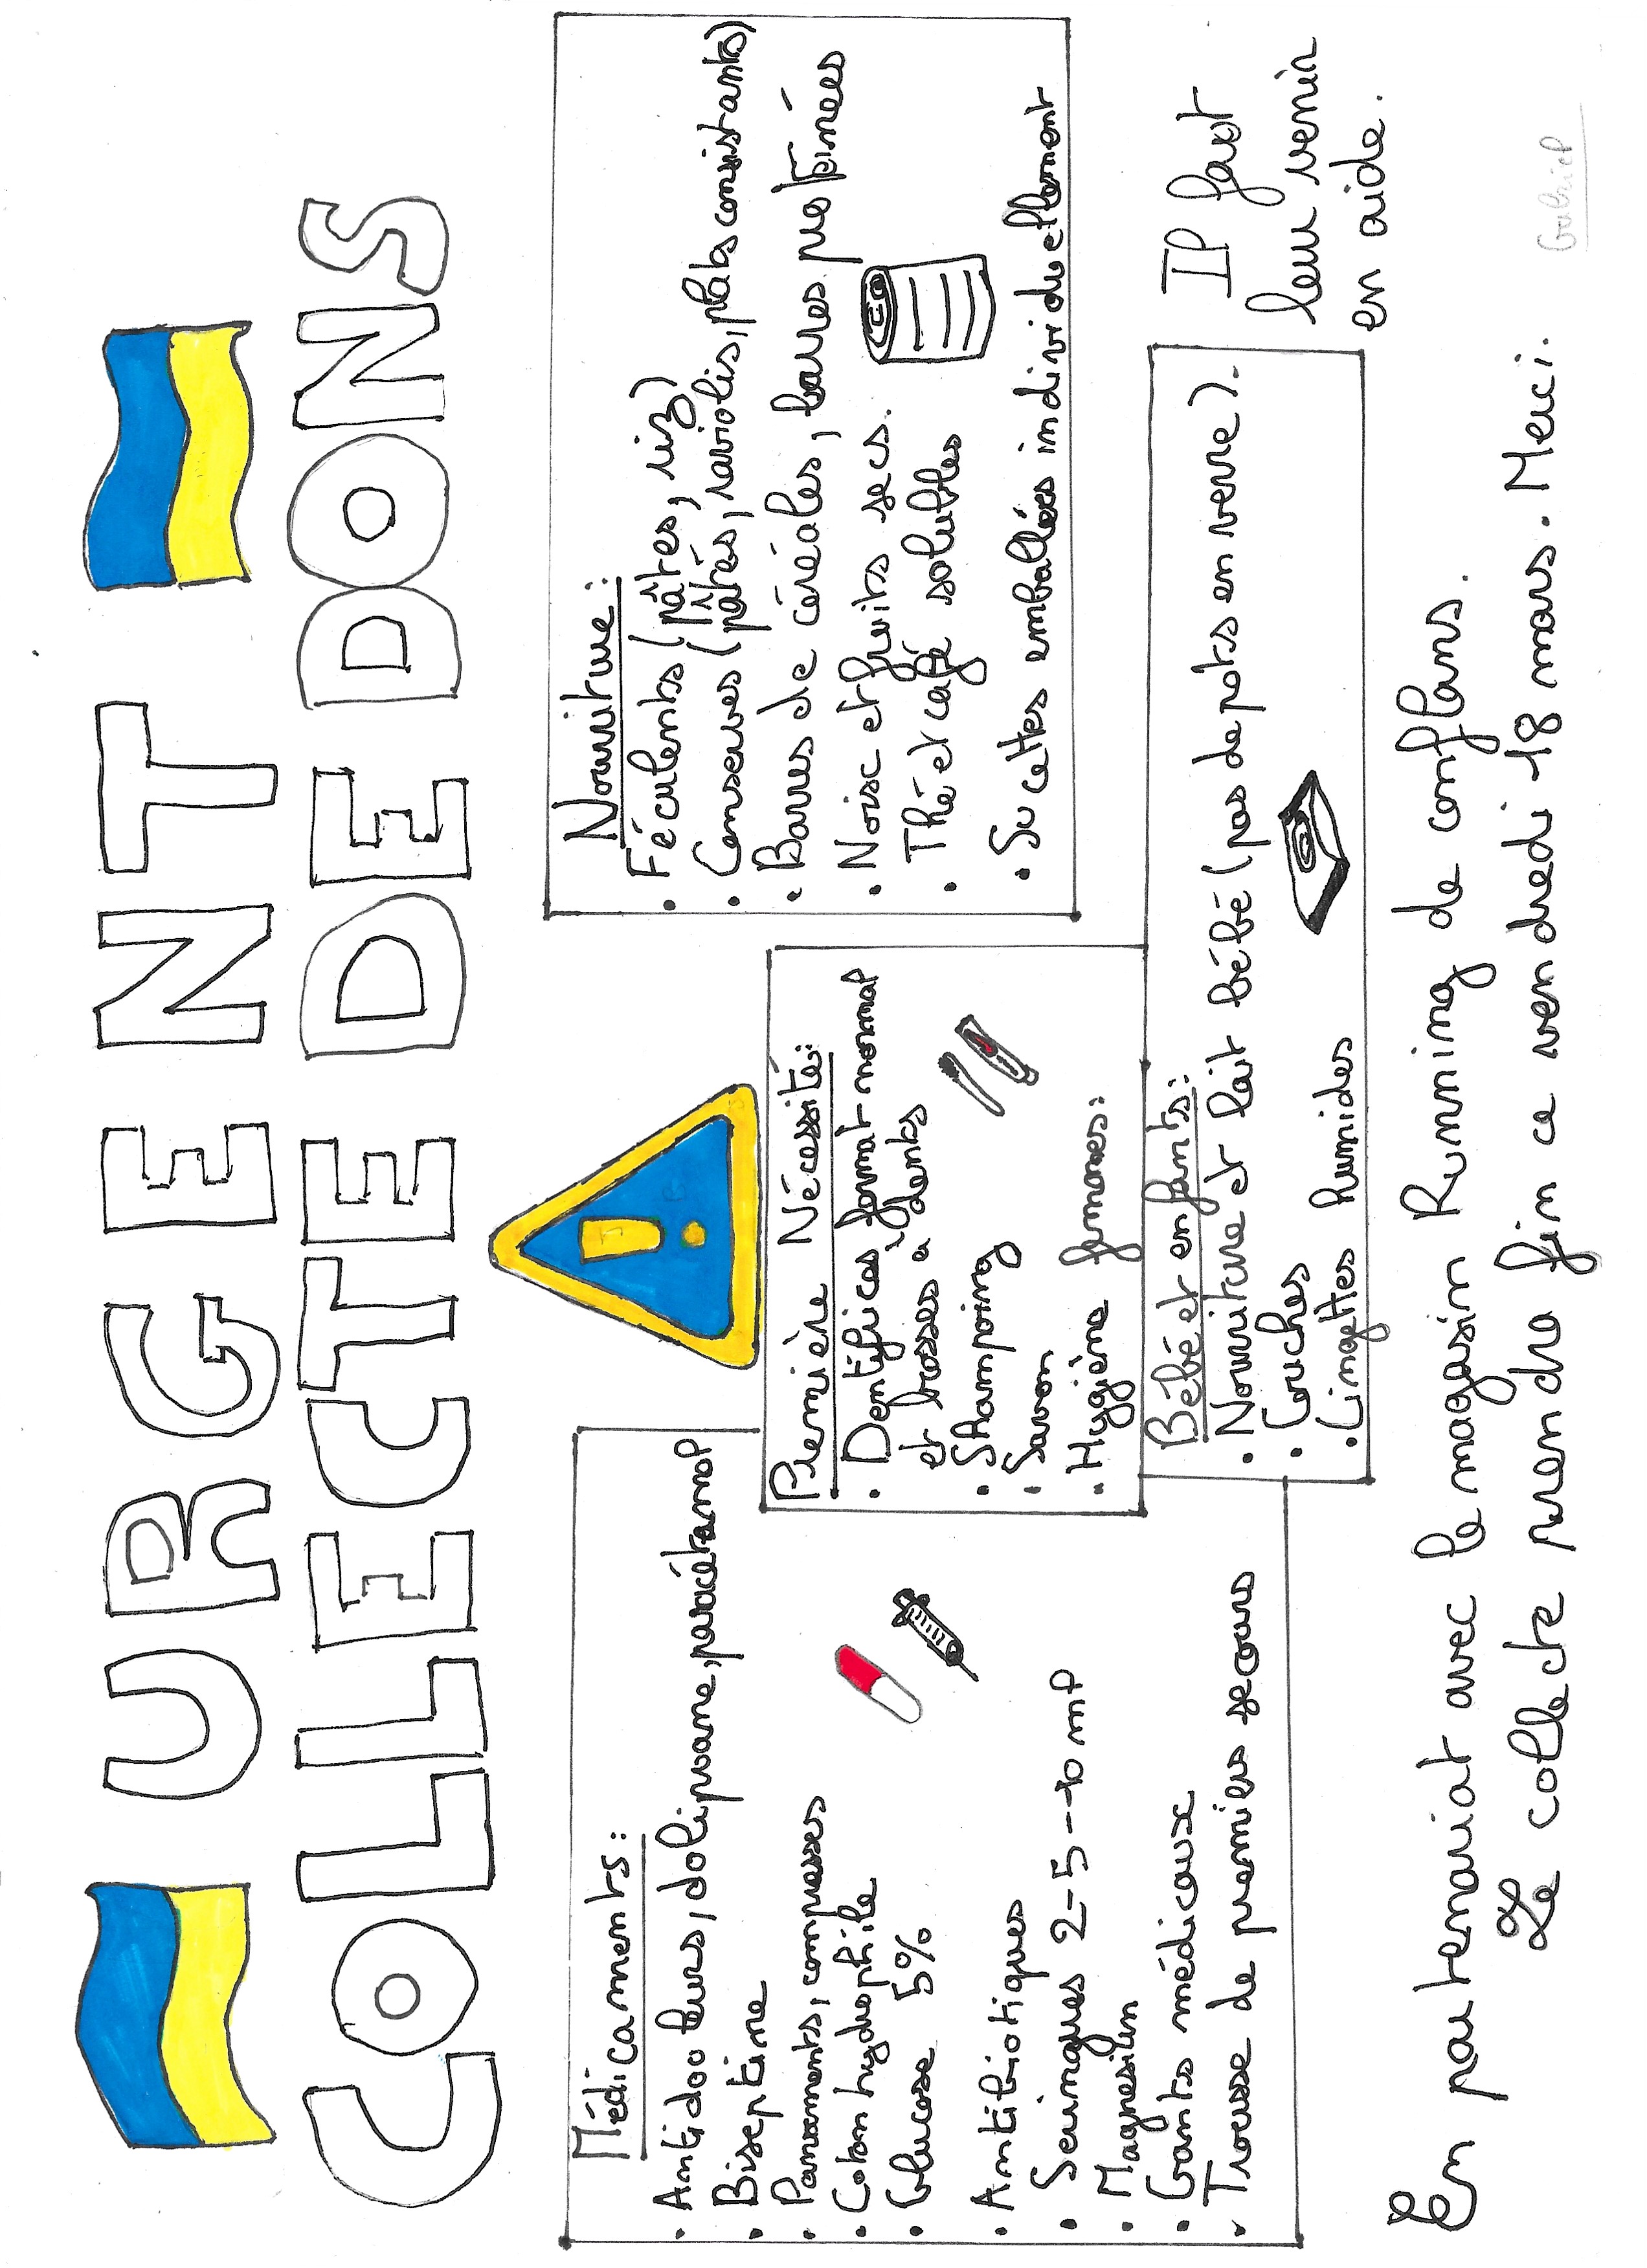 URGENT
COLLECTE DE DONS
Médicaments:
• Antidouleurs, doliprane, paracétamol
• Biseptine
• Pansements, compresses
• Coton hydrophile
• Glucose 5%
• Antibiotiques
• Seringues 2-5-10 ml
• Magnésium
• Gants médicaux
• Trousse de premiers secours
Première Nécessité:
• Dentifrices format normal
et brosses à dents
• Shampoing
• Savon
• Hygiène femmes:
Nourriture:
• Féculents (pâtes, riz)
• Conserves (pâtés, raviolis, plats consistants)
• Barres de céréales, barres protéinées
• Noix et fruits secs.
• Thé et café solubles
• Sucettes emballées individuellement
Bébé et enfants:
• Nourriture et lait bébé (pas de pots en verre).
• Couches
• Lingettes humides
Il faut
leur venir
en aide.
En partenariat avec le magasin Running de conflans.
La collecte prendra fin ce vendredi 18 mars. Merci.
Gabriel